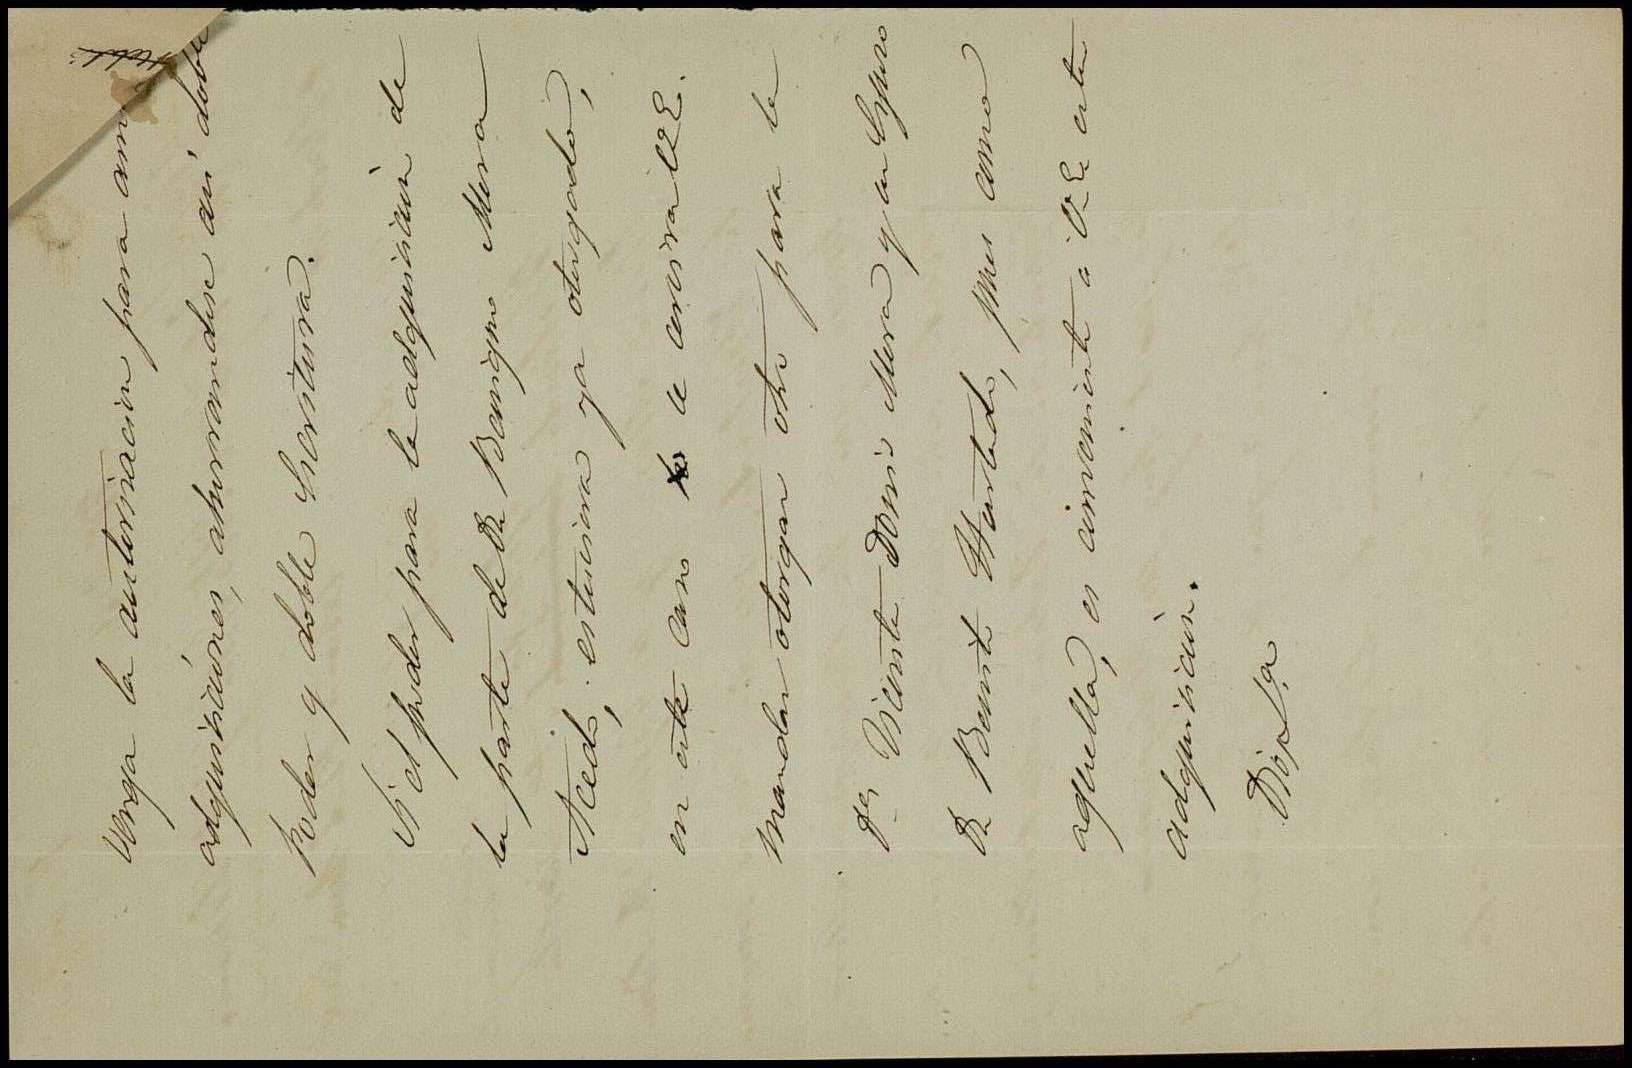 venga la autorisacion para am
adquisiciones, ahorrandose asi doble
poder y doble Escritura.
Si el poder para la adquisicion de
la parte de Dn Benigno Mera
Acedo, estuviera ya otorgado,
en este caso le cerira V.E.
mandar otorgar otro para la
de Dn Vicente Dorio Mera y su Esposo
Dn Benito Hurtado, pues como
aquella, es conveniente a V.E. esta
adquisicion.